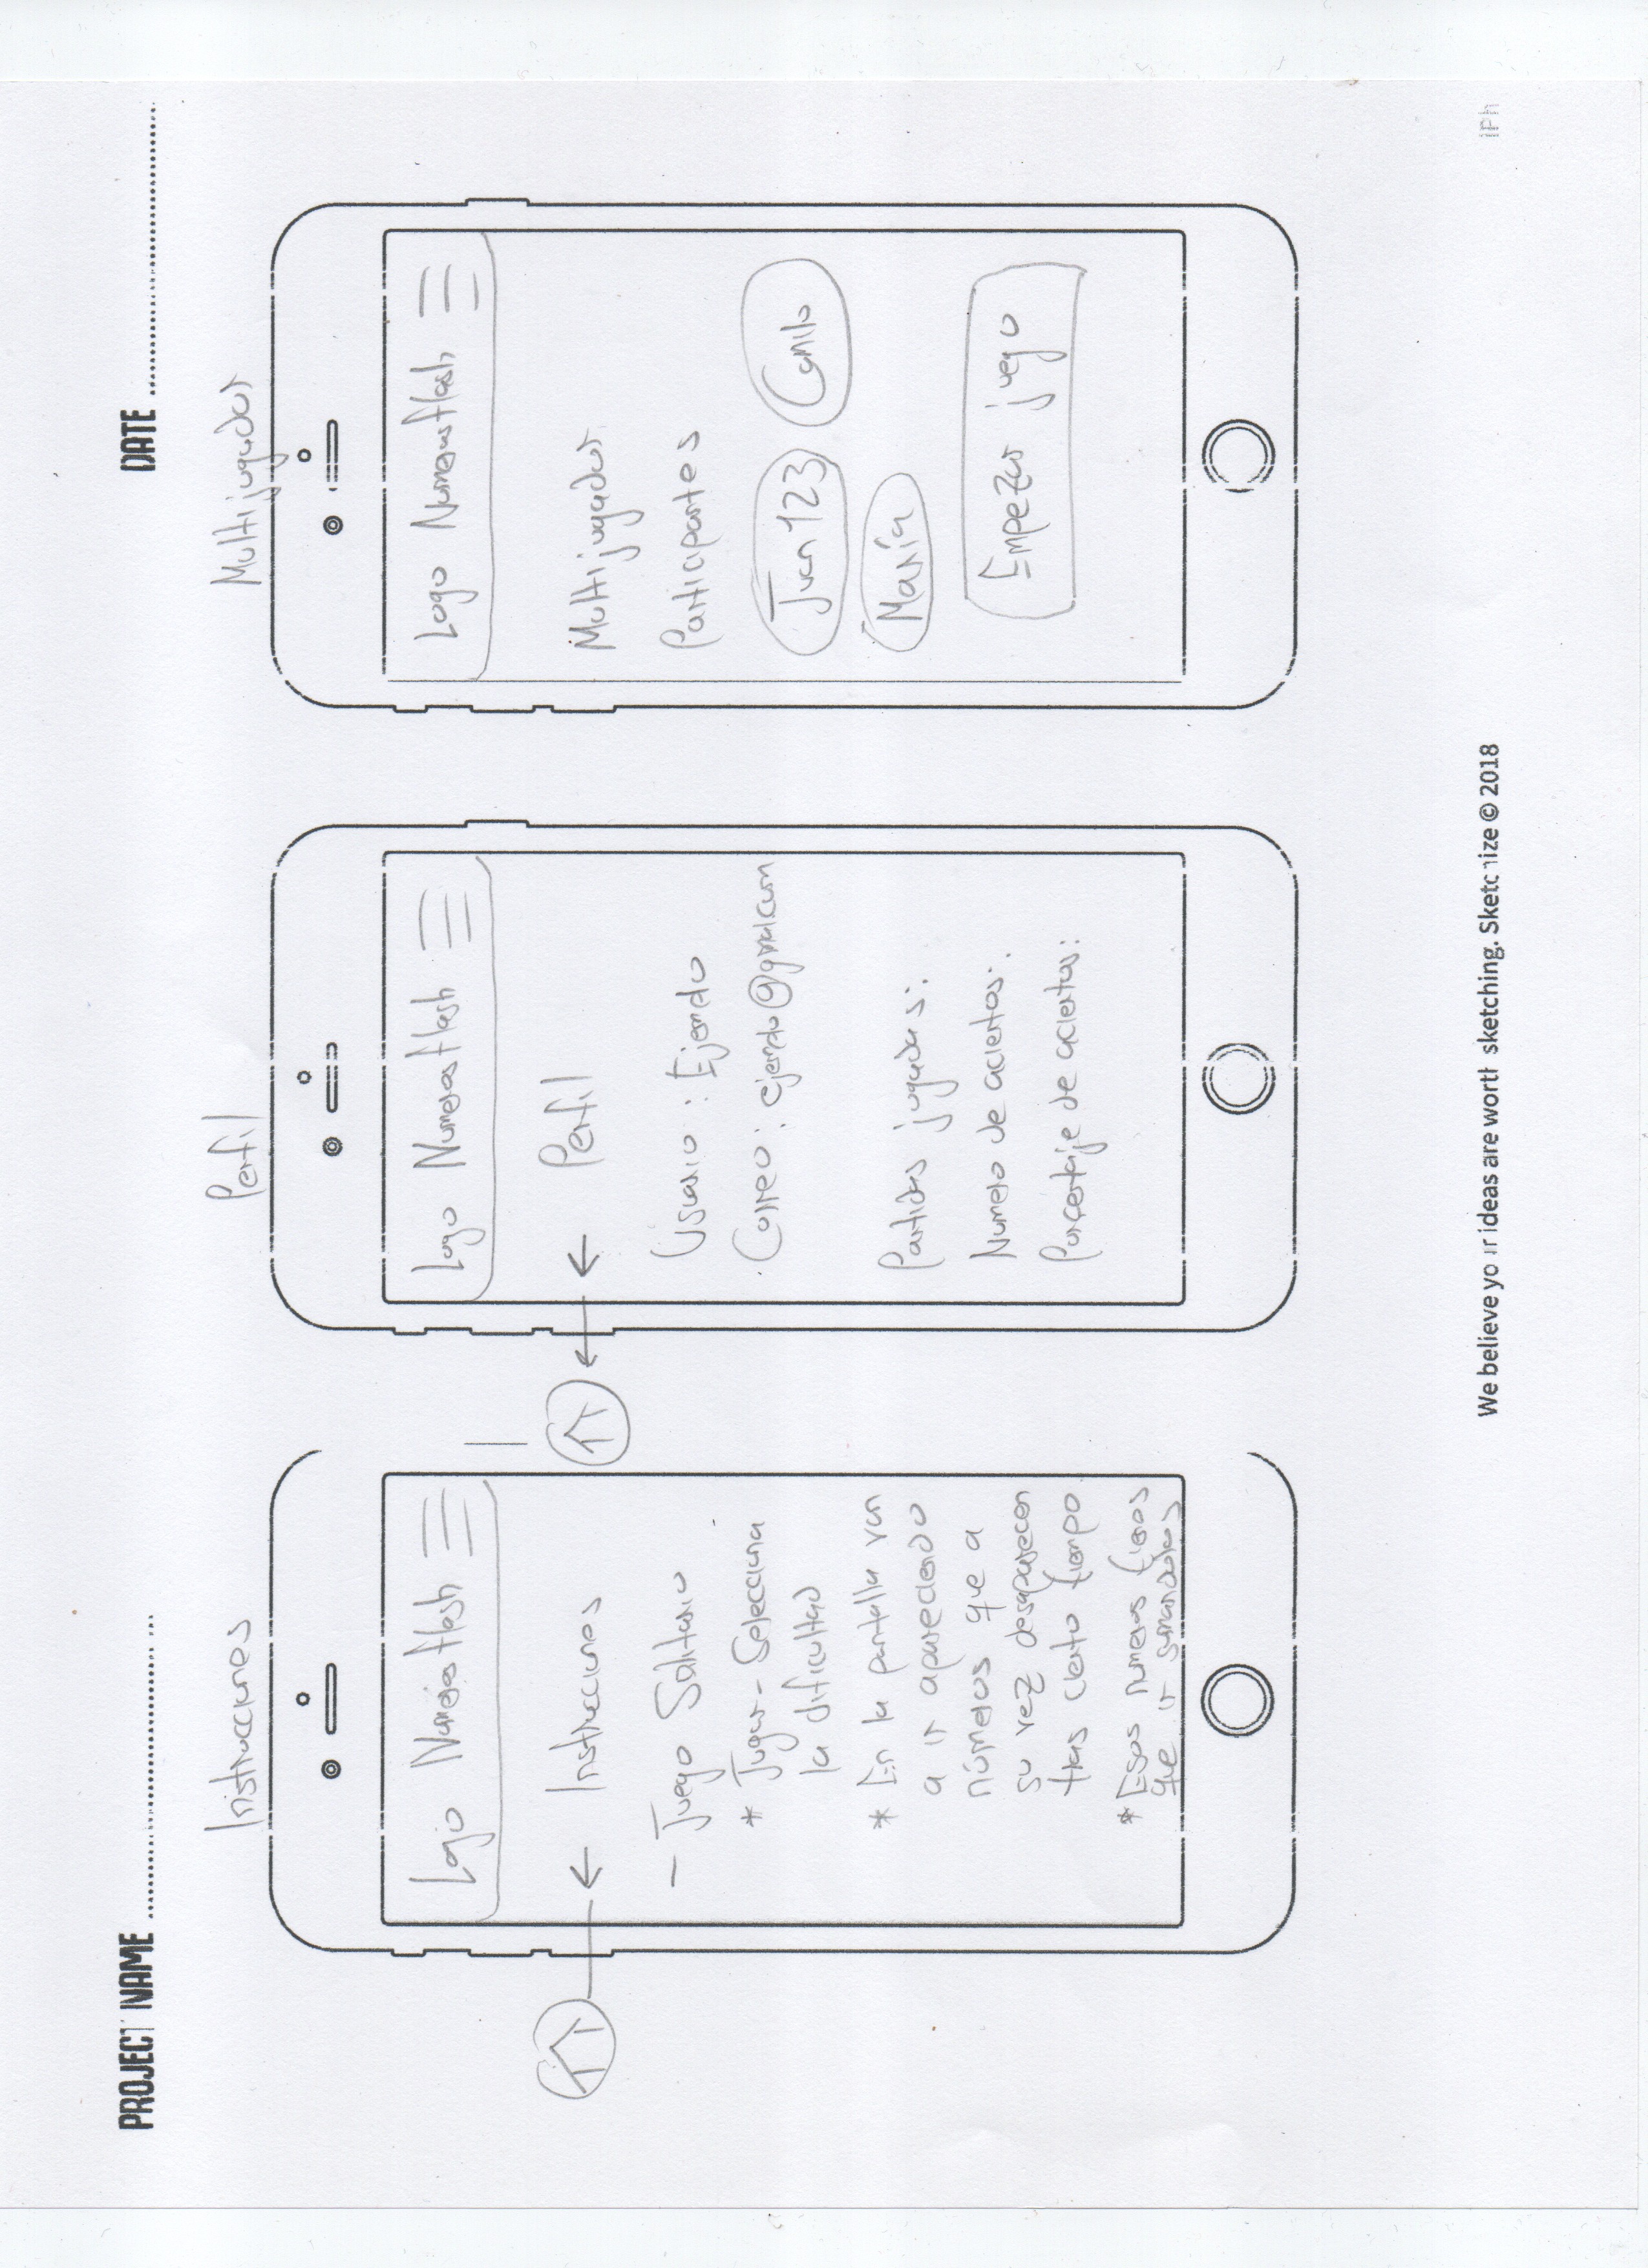 PROJECT NAME
DATE
Instrucciones
Logo Numerosflash
← Instrucciones
- Juego Solitario
* Jugar - Selecciona
la dificultad
* En la pantalla van
a ir apareciendo
números que a
su vez desaparecen
tras cierto tiempo
* Esos numeros tienes
que ir sumandolos
Perfil
Logo Numerosflash
← Perfil
Usuario : Ejemplo
Correo : ejemplo@gmail.com
Partidas jugadas:
Numero de aciertos:
Porcentaje de aciertos:
Multijugador
Logo Numerosflash
Multijugador
Participantes
Juan123 Camilo
María
Empezar juego
We believe your ideas are worth sketching. Sketchize © 2018
iPh